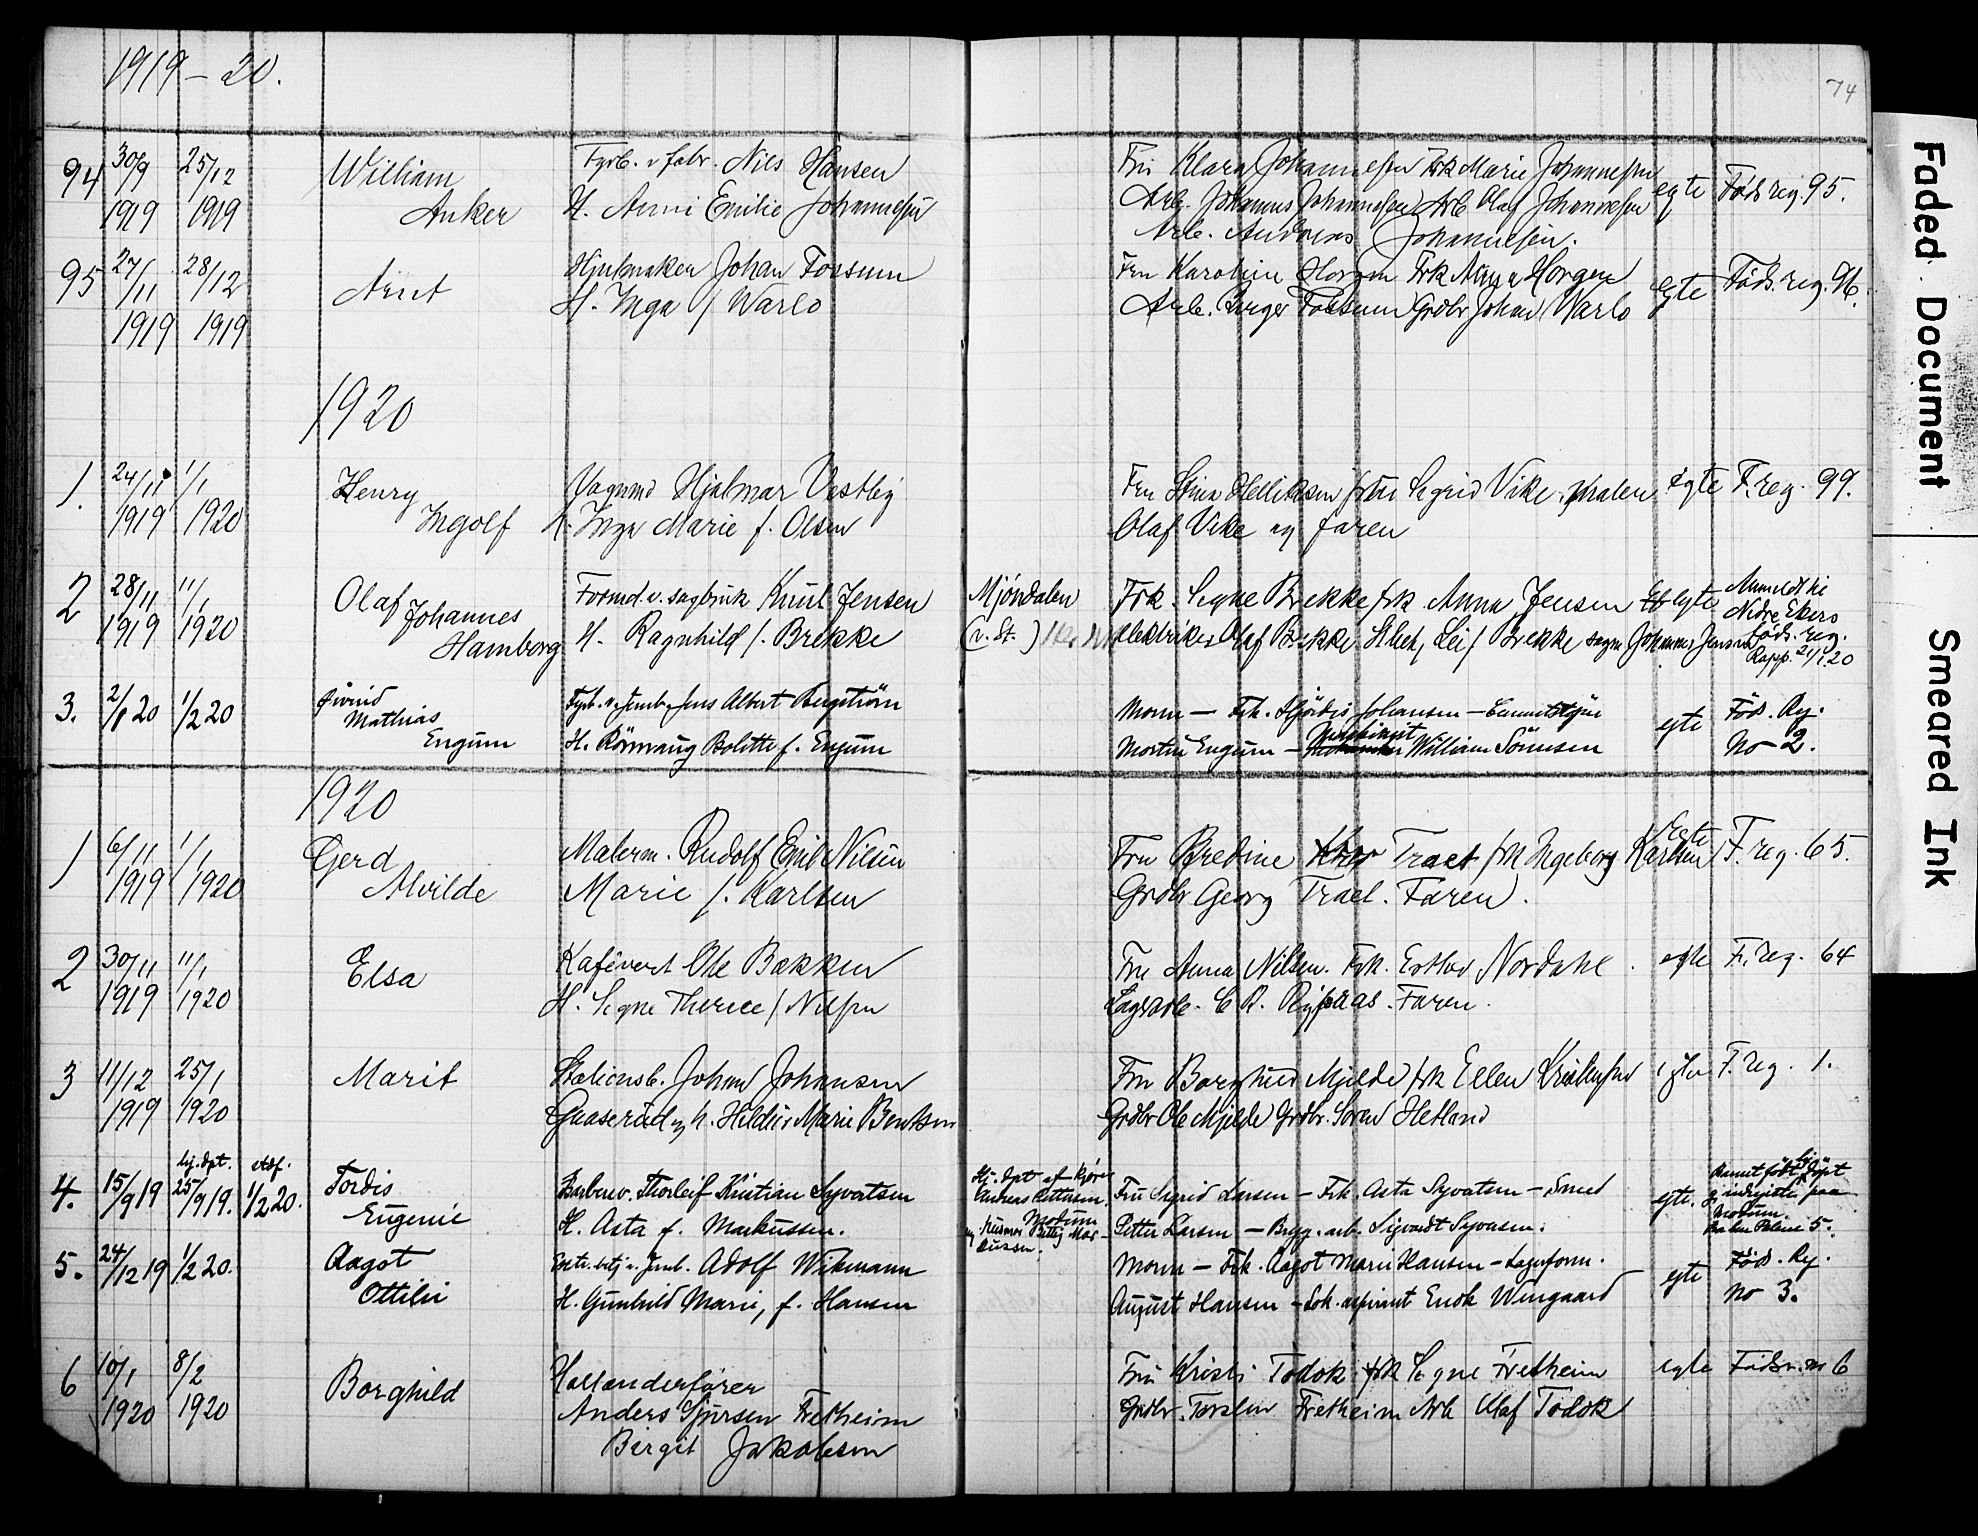 1919 – 20.
74
94 30/9 1919 25/12 1919 William Anker
Fyrb. v. fabr. Nils Hansen
H. Anni Emilie Johannesen
Fru Klara Johannesen Frk Marie Johannesen
Arb. Johannes Johannesen Arb Olaf Johannesen
Arb. Andreas Johannesen.
egte Føds reg. 95.
95 27/11 1919 28/12 1919 Arnt
Hjulmaker Johan Fossum
H. Inga f Warlo
Fru Karoline Horgen Frk Maria Horgen
Arb. Birger Fossum Grdbr Johan Warlo
egte Føds. reg. 96.
1920
1. 24/11 1919 1/1 1920 Henry Ingolf
Vognmd Hjalmar Vestby
h. Inga Marie f. Olsen
Fru Stina Helliksen Sigrid Vike
Olaf Vike og faren
egte F. reg. 99.
2 28/11 1919 11/1 1920 Olaf Johannes Hamborg
Formd. v. sagbruk Knut Jensen
H. Ragnhild f. Brekke
Mjøndalen
(v. St.)
Frk. Signe Brekke frk. Anna Jensen
Elektriker Olaf Brekke Leif Brekke Johannes Jensen
egte Anmeldt til
Nedre Ekers
Føds. reg.
Rapp. 21/1 20
3. 2/1 20 1/2 20 Øivind Mathias Engum
Fyrb. v. Jernb. Jens Albert Bergström
H. Rönnaug Bolette f. Engum
Moren – Frk. Hjördis Johansen –
Martin Engum – Maskinist William Sörensen
egte Föd. Reg.
No 2.
1920
1 6/11 1919 1/1 1920 Gerd Alvilde
Malerm. Rudolf Emil Nilsen
Marie f. Karlsen
Fru Bredine Traet frk Ingeborg Karlsen
Grdbr Georg Traet. Faren.
egte F. reg. 65.
2 30/11 1919 11/1 1920 Elsa
Kafévert Ole Bakken
H. Signe Therese f Nilsen
Fru Anna Nilsen. Frk. Esther Nordahl.
Faren.
egte F. reg. 64
3 11/12 1919 25/1 1920 Marit
Stationsb. Johan Johansen
Gaaserud og h. Hildur Marie Bentsen
Fru Borghild Mjelde frk Ellen
Grdbr Ole Mjelde Grdbr. Søren Hetland
egte F. reg. 1.
4. 15/9 19 hj. dpt. 25/9 19. stadf. 1/2 20. Tordis Eugenie
Thorleif Kristian Syvatsen
H. Asta f. Markussen.
Hj. dpt af
Motum
og Husmor Betty Markussen.
Fru Sigrid Larsen – Frk. Asta Syvatsen – Smed
Petter Larsen – Brygg. arb. Sigvardt Syvatsen.
egte.
Barnet født, hj. døpt
paa
Modum.
5.
5. 24/12 19 1/2 20. Aagot Ottilie
v. Jernb. Adolf Wikmann
H. Gunhild Marie, f. Hansen
Moren – Frk. Aagot Marie Hansen – Lagerform.
August Hansen – Lok. aspirant Enok Wingaard
egte Föd. Reg.
No 3.
6 10/1 1920 8/2 1920 Borghild
Hollenderfører
Anders Fretheim
Birgit Jakobsen
Fru Kristi Todok frk Signe Fretheim
Grdbr. Fretheim Arb Olaf Todok
egte Fødsr. no 6
Faded Document
Smeared Ink